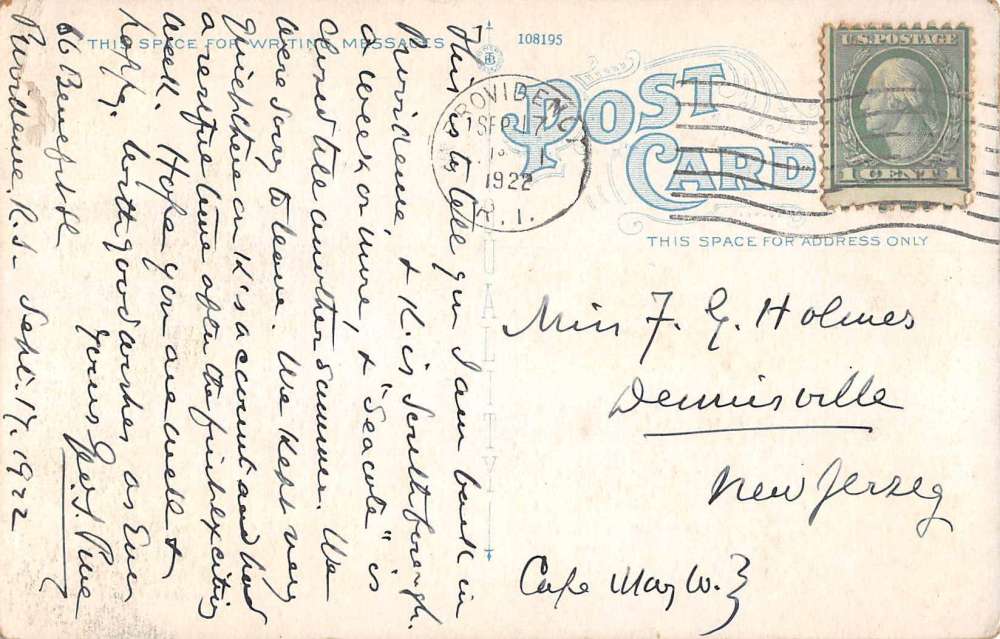 THIS SPACE FOR WRITING MESSAGES
108195
POST CARD
THIS SPACE FOR ADDRESS ONLY
U.S. POSTAGE
1 CENT 1
PROVIDENCE
SEP 17
1922
R.I.
QUALITY
This is to tell you I am back in
Providence, & K. is in
a week or more, & "Seacote" is
closed till another summer. We
were sorry to leave. We kept very
quiet there on K's account and had
a restful time after the first exciting
week. Hope you are well &
happy. With good wishes as Ever
Yours Geo.
86 Benefit St.
Providence, R.I. Sept. 17. 1922
Miss F. G. Holmes
Dennisville
New Jersey
Cape May Co. }